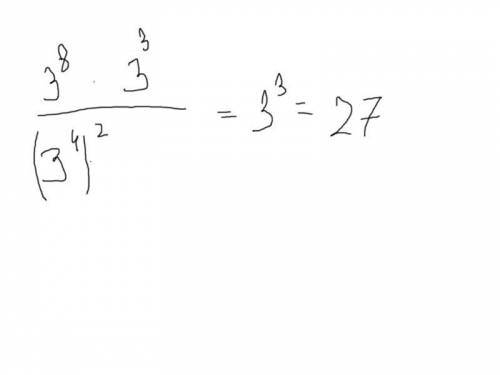 3⁸ · 3³
(3⁴)² = 3³ = 27